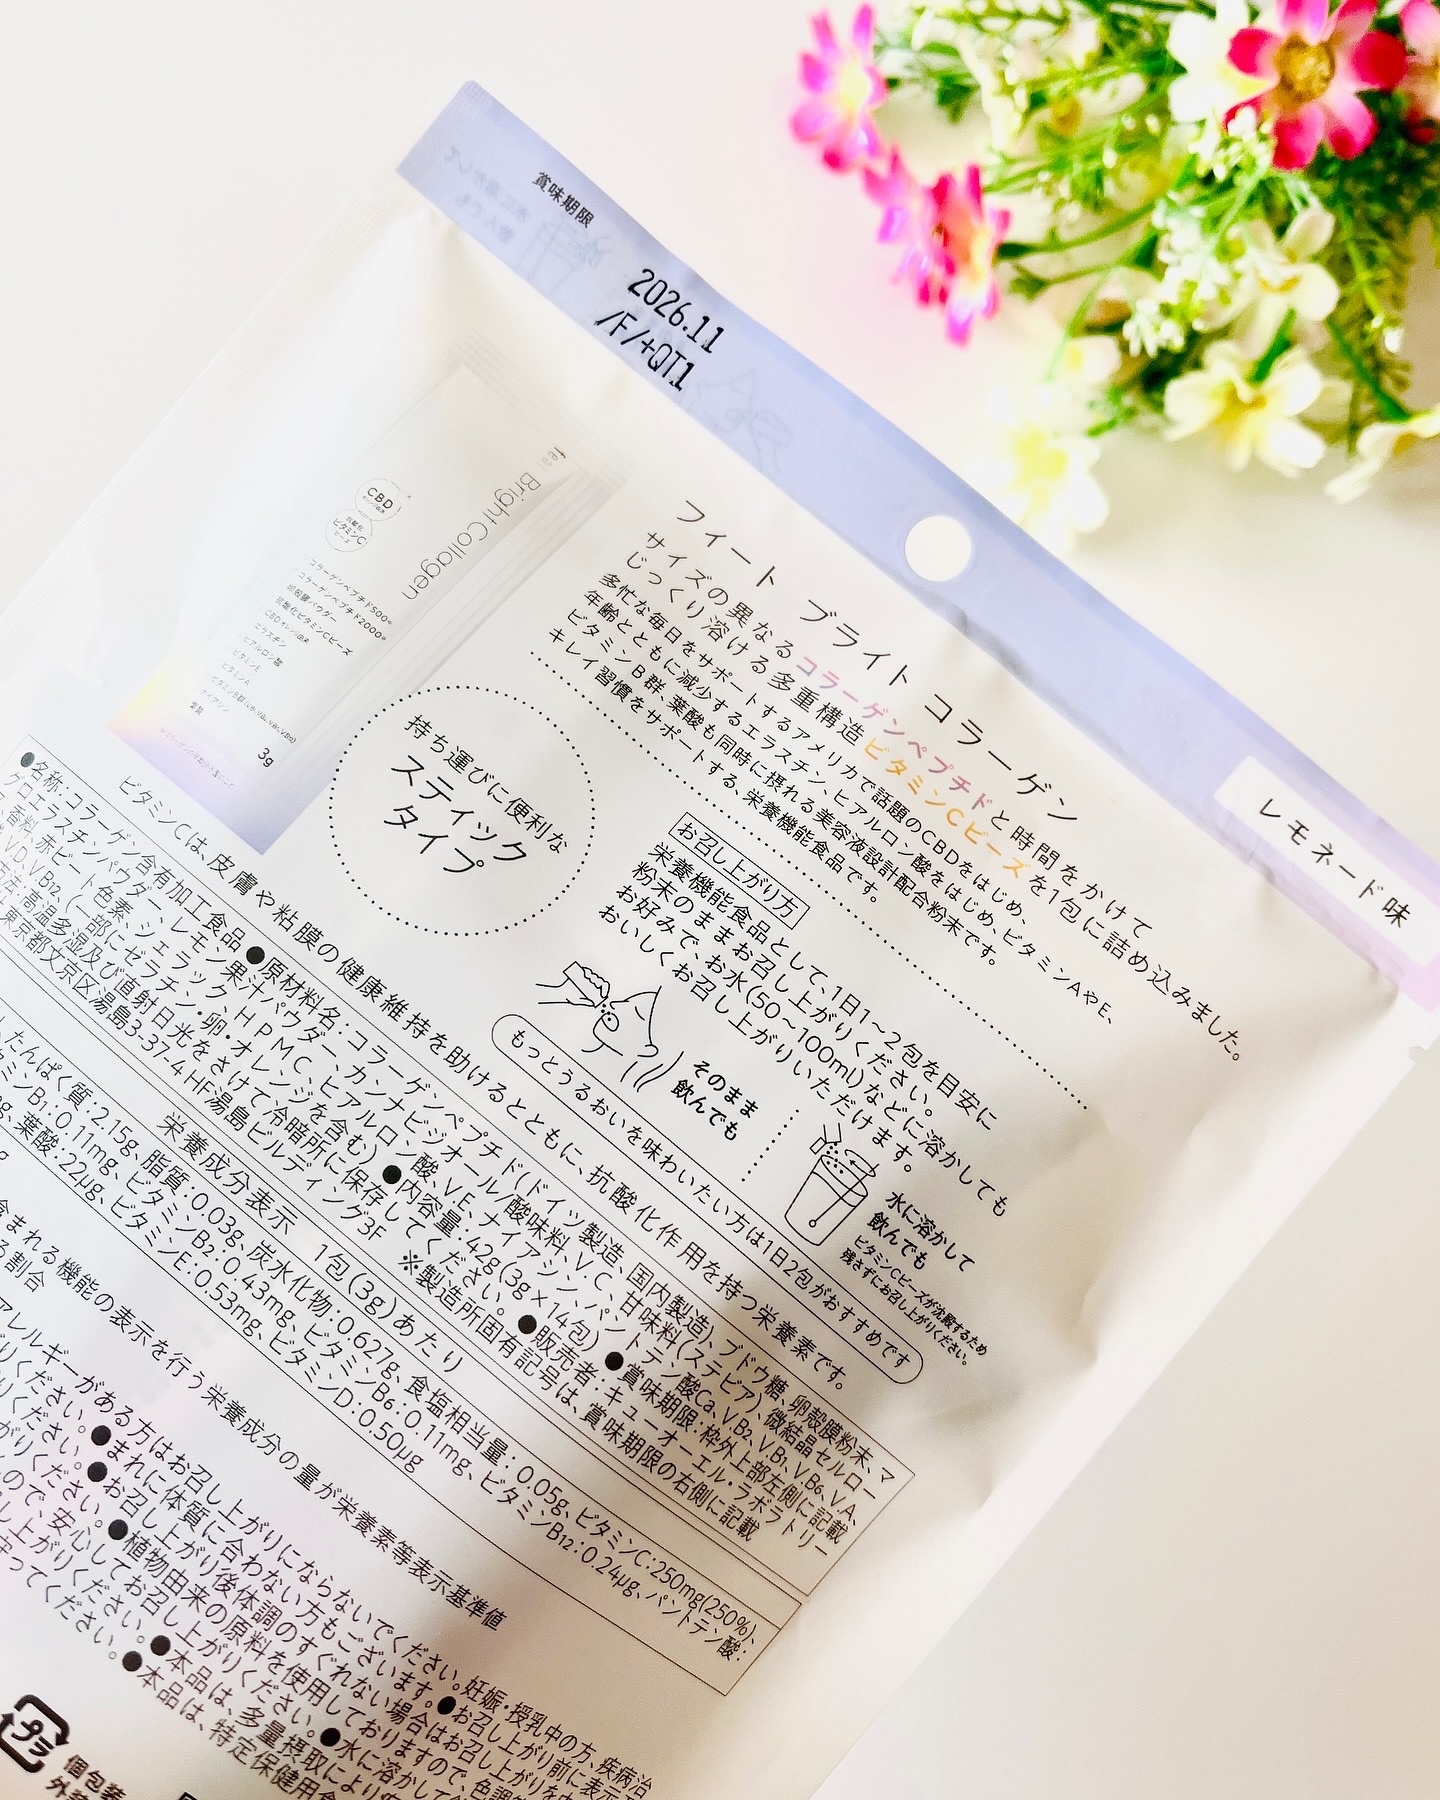 賞味期限
2026.11
/F/+QT1
レモネード味
フィート ブライト コラーゲン
サイズの異なるコラーゲンペプチドと時間をかけて
じっくり溶ける多重構造ビタミンCビーズを1包に詰め込みました。
多忙な毎日をサポートするアメリカで話題のCBDをはじめ、
年齢とともに減少するエラスチン、ヒアルロン酸をはじめ、ビタミンAやE、
ビタミンB群、葉酸も同時に摂れる美容液設計配合粉末です。
キレイ習慣をサポートする、栄養機能食品です。
Bright Collagen
CBD
ビタミンC
ビーズ
コラーゲンペプチド500
コラーゲンペプチド2000
卵殻膜パウダー
CBD
エラスチン
ヒアルロン酸
ビタミンE
ビタミンA
ナイアシン
葉酸
3g
持ち運びに便利な
スティック
タイプ
お召し上がり方
栄養機能食品として、1日1~2包を目安に
粉末のままお召し上がりください。
お好みで、お水(50~100ml)などに溶かしても
おいしくお召し上がりいただけます。
そのまま
飲んでも
水に溶かして
飲んでも
ビタミンCビーズが沈殿するため
残さずにお召し上がりください。
もっとうるおいを味わいたい方は1日2包がおすすめです
ビタミンCは、皮膚や粘膜の健康維持を助けるとともに、抗酸化作用を持つ栄養素です。
●名称:コラーゲン含有加工食品 ●原材料名:コラーゲンペプチド(ドイツ製造、国内製造)、ブドウ糖、卵殻膜粉末、マ
グロエラスチンパウダー、レモン果汁パウダー、カンナビジオール/酸味料、V.C、甘味料(ステビア)、微結晶セルロー
香料、赤ビート色素、シェラック、HPMC、ヒアルロン酸、V.E、ナイアシン、パントテン酸Ca、V.B2、V.B1、V.B6、V.A、
V.D、V.B12、(一部にゼラチン・卵・オレンジを含む) ●内容量:42g(3g×14包) ●賞味期限:枠外上部左側に記載
方法:高温多湿及び直射日光をさけて、冷暗所に保存してください。 ●販売者:キューオーエル・ラボラトリー
東京都文京区湯島3-37-4 HF湯島ビルディング3F ※製造所固有記号は、賞味期限の右側に記載
栄養成分表示 1包(3g)あたり
たんぱく質:2.15g、脂質:0.03g、炭水化物:0.627g、食塩相当量:0.05g、ビタミンC:250mg(250%)、
ミンB1:0.11mg、ビタミンB2:0.43mg、ビタミンB6:0.11mg、ビタミンB12:0.24μg、パントテン酸:
葉酸:22μg、ビタミンE:0.53mg、ビタミンD:0.50μg
含まれる機能の表示を行う栄養成分の量が栄養素等表示基準値
割合
アレルギーがある方はお召し上がりにならないでください。妊娠・授乳中の方、疾病治
ください。 ●まれに体質に合わない方もございます。 ●お召し上がり前に表示
ください。 ●お召し上がり後体調のすぐれない場合はお召し上がりを
がりください。 ●植物由来の原料を使用しておりますので、色調
ので、安心してお召し上がりください。 ●水に溶かして
上がりください。 ●本品は、多量摂取により
ってください。 ●本品は、特定保健用
プラ
個包装
外装